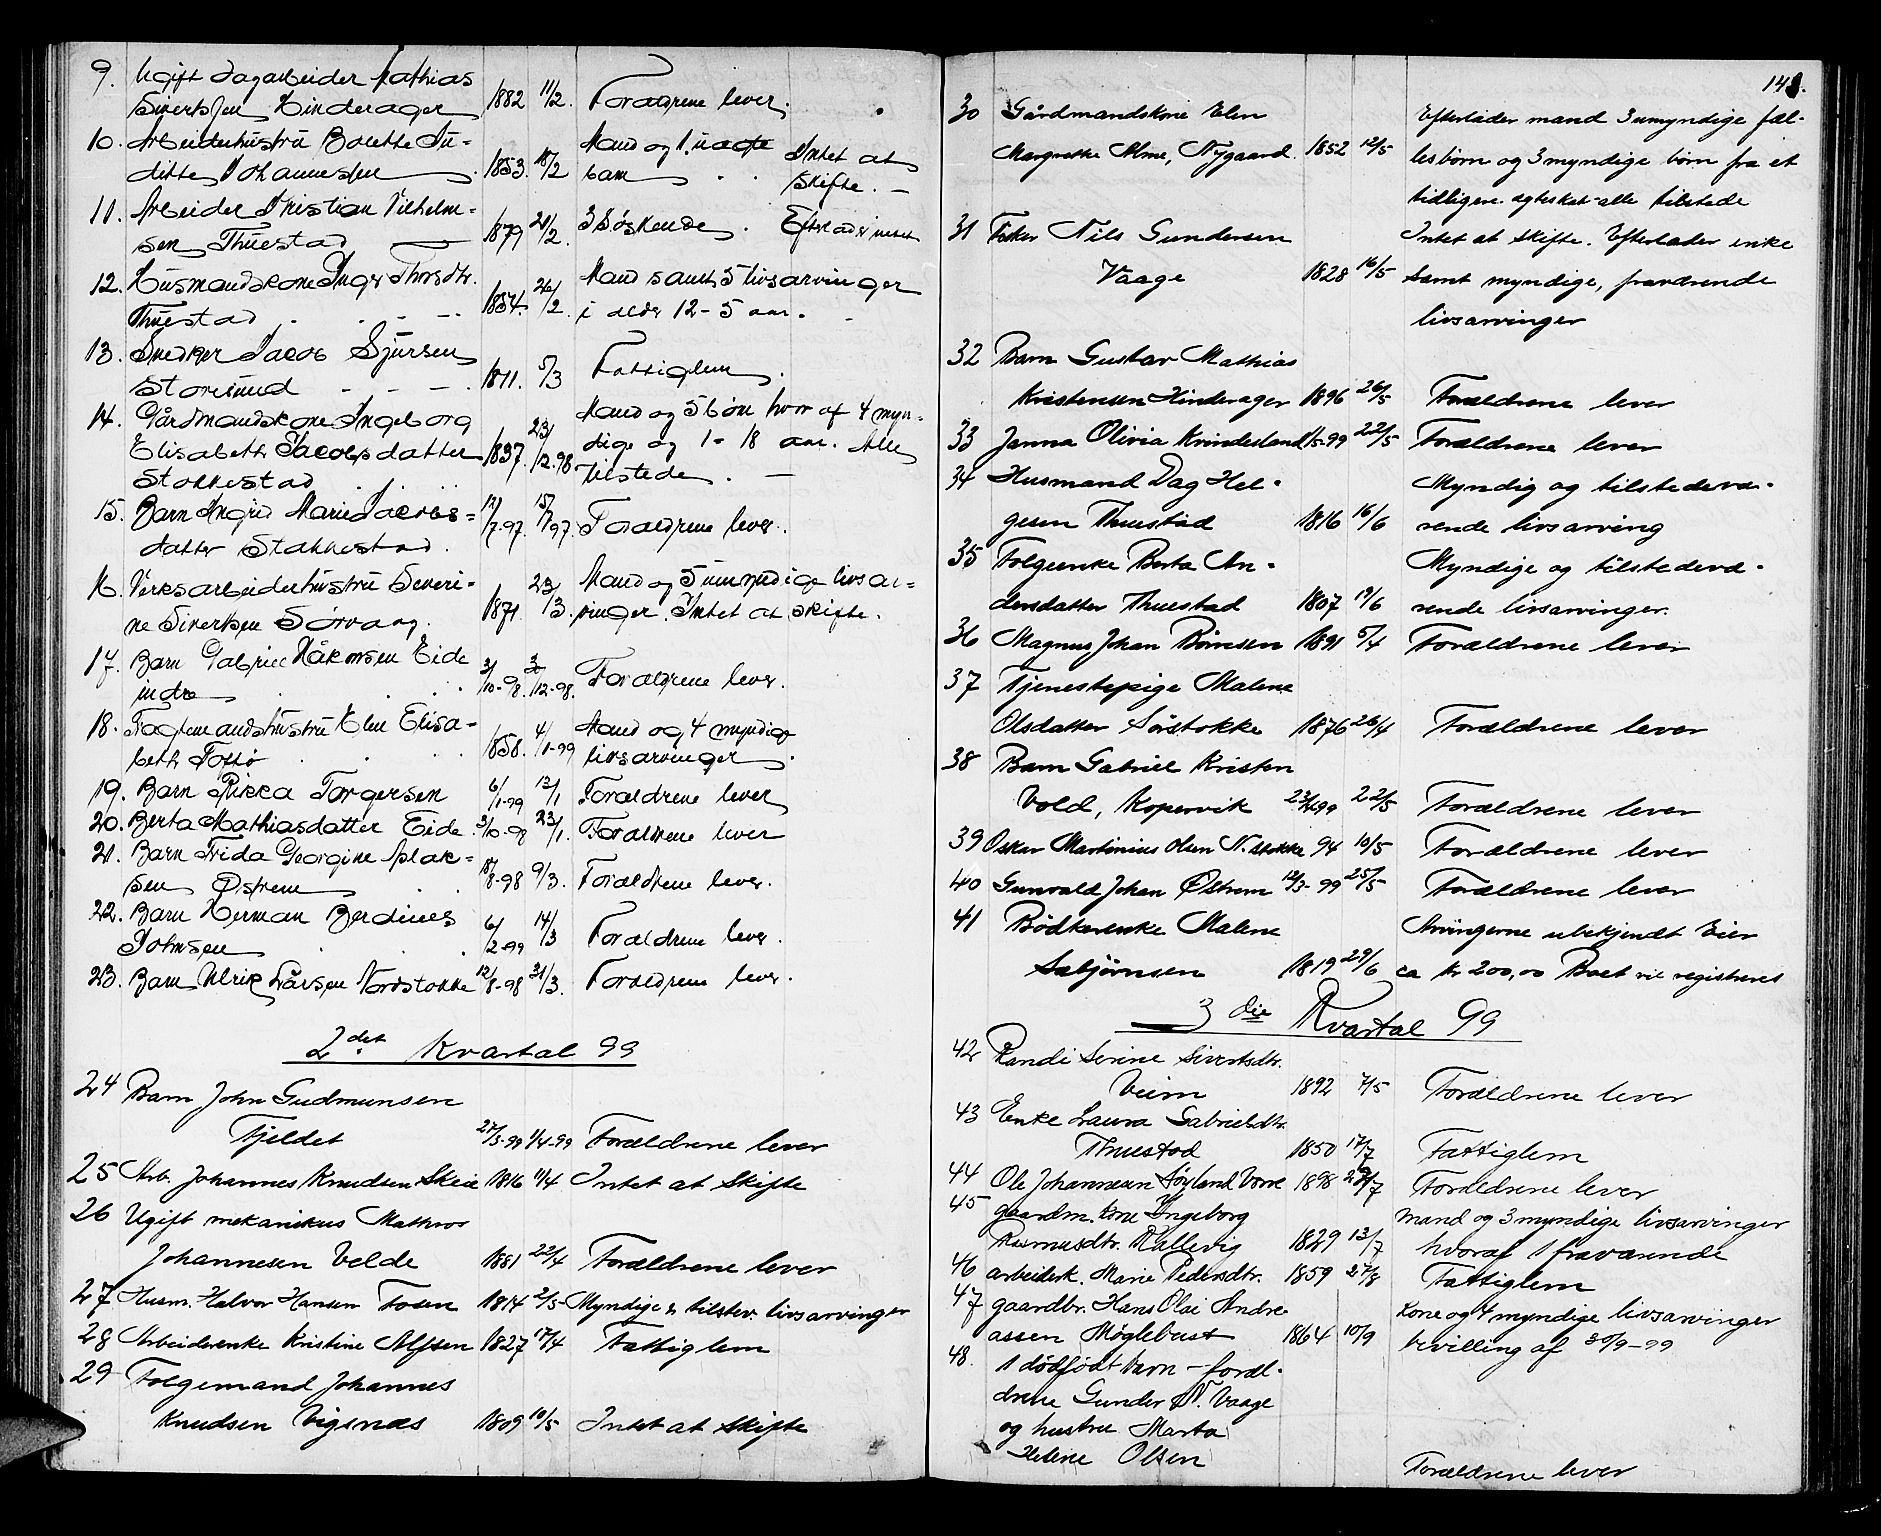 9. Ugift Dagarbeider Mathias
Sivertsen Hinderager 1882 11/2. Forældrene lever.
10. Arbeiderhustru Bolette Ju-
ditte Johannesen 1853. 18/2 Mand og 1 uægte barn . . Intet at skifte. —
11. Arbeider Kristian Vilhelm-
sen Thuestad 1879 20/2. 3 Søskende. Efterlader intet
12. Husmandskone Inger Thorsdtr.
Thuestad . . . 1854. 26/2. Mand samt 5 livsarvinger
i alder 12-5 aar.
13. Snedker Jacob Sjursen
Storesund - - - . 1811. 5/3 Fattiglem.
14. Gårdmandskone Ingeborg
Elisabeth Jacobsdatter
Stokkestad 1837. 23/12-98 Mand og 5 børn hvor af 4 myn-
dige og 1 = 18 aar. Alle
tilstede. —
15. Barn Ingrid Marie Jacobs=
datter Stakkestad. /7-97. 15/7 97. Forældrene lever.
16. Verksarbeiderhustru Severi-
ne Sivertsen Sørvaag. 1871. 23/3. Mand og 5 umyndige livsar=
vinger. Intet at skifte.
17. Barn Gabriel Håkonsen Eide
indre . . . 3/10-98. /12-98. Forældrene lever.
18. Fraglmandshustru Elen Elisa-
beth Tostø . . 1858. 4/1-99 Mand og 4 myndige
livsarvinger.
19. Barn Rikka Torgersen 6/1-99 13/1 Forældrene lever
20. Berta Mathiasdatter Eide. 3/10-98 23/1. Forældrene lever
21. Barn Frida Georgine Aplak-
sen Østrem . . 18/8-98 9/3. Forældrene lever.
22. Barn Herman Berdines
Johnsen . . . 6/2-99 14/3 Forældrene lever.
23. Barn Ulrik Larsen Nordstokke 12/8-98 31/3. Forældrene lever.
2det Kvartal 99
24 Barn John Gudmunsen
Fjeldet 27/3-99 1/4-99 Forældrene lever
25 Arb. Johannes Knudsen Skeie 1816 11/4 Intet at Skifte
26 Ugift mekanikus Mathias
Johannesen Velde 1881 22/4 Forældrene lever
27 Husm. Halvor Hansen Fosen 1814 2/5 Myndige & tilstev. livsarvinger
28 Arbeiderenke Kristine Alfsen 1827 17/4 Fattiglem
29 Folgemand Johannes
Knudsen Vigsnæs 1809 10/5 Intet at Skifte
148.
30 Gårdmandskone Elen
Margrethe Alme, Nygaard. 1852 12/5 Efterlader mand 3 umyndige fæl-
lesbørn og 3 myndige børn fra et
tidligere egteskab - alle tilstede
31 Fisker Nils Gundersen
Vaage 1828 16/5 Intet at skifte. Efterlader enke
samt myndige, fraværende
livsarvinger
32 Barn Gustav Mathias
Kristensen Hinderager 1896 26/5 Forældrene lever
33 Janna Olivia Kvinesland /5-99 22/5 Forældrene lever
34 Husmand Dag Hel-
gesen Thuestad 1816 16/6 Myndig og tilstedevæ-
rende livsarving
35 Folgeenke Berta An-
dersdatter Thuestad 1807 19/6 Myndige og tilstedevæ-
rende livsarvinger.
36 Magnus Johan Børnsen 1891 5/4 Forældrene lever
37 Tjenestepige Malene
Olsdatter Sørstokke 1876 26/4 Forældrene lever
38 Barn Gabriel Kristen
Vold, Kopervik 99 22/5 Forældrene lever
39 Oskar Martinius Olsen N. Stokke 94 10/5 Forældrene lever
40 Gunvald Johan Østrem 12/3-99 25/5 Forældrene lever
41 Bødkerenke Malene
Sæbjørnsen 1819 29/6 Arvingerne ubekjendt Eier
ca kr 200,00 Boet vil registreres
3die Kvartal 99
42 Randi Serine Sivertsdtr.
Veim 1892 7/5 Forældrene lever
43 Enke Laura Gabrielsdtr.
Thuestad 1850 17/7 Fattiglem
44 Ole Johannesen Søyland Vorre 1898 /7 Forældrene lever
45 gaardm. kone Ingeborg
Rasmusdtr. Hallevig 1829 13/7 Mand og 3 myndige livsarvinger
hvoraf 1 fraværende
46 arbeiderk. Marie Pedersdtr. 1859 27/8 Fattiglem
47 gaardbr. Hans Olai Andre
assen Møglebust 1864 10/9 Kone og 4 myndige livsarvinger
bevilling af 30/9-99
48. 1 dødfødt barn - foræl-
drene Gunder N. Vaage
og hustru Marta
Helene Olsen Forældrene lever